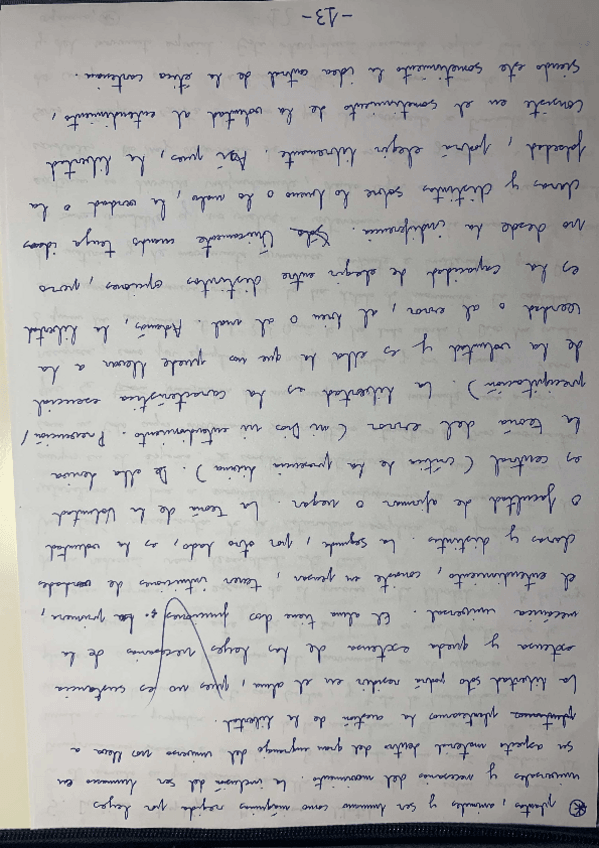 * plantas, animales y ser humano como máquinas regida por leyes
universales y necesarias del movimiento. La inclusión del ser humano en
su aspecto material dentro del gran engranaje del universo nos lleva a
plantearnos la cuestión de la libertad.
La libertad solo podrá residir en el alma, pues no es sustancia
extensa y queda exenta de las leyes necesarias de la
mecánica universal. El alma tiene dos funciones: La primera,
el entendimiento, consiste en pensar, tener intuiciones de verdades
claras y distintas. La segunda, por otro lado, es la voluntad
o facultad de afirmar o negar. La Teoría de la Voluntad
es central (crítica de la presencia divina). De ella deriva
la teoría del error (ni Dios ni entendimiento. Presunción/
precipitación). La libertad es la característica esencial
de la voluntad y es ella la que nos puede llevar a la
verdad o al error, al bien o al mal. Además, la libertad
es la capacidad de elegir entre distintas opciones, pero
no desde la indiferencia. Únicamente cuando tenga ideas
claras y distintas sobre lo bueno o lo malo, la verdad o la
falsedad, podrá elegir libremente. Así pues, la libertad
consiste en el sometimiento de la voluntad al entendimiento,
siendo este sometimiento la idea central de la ética cartesiana.
-13-